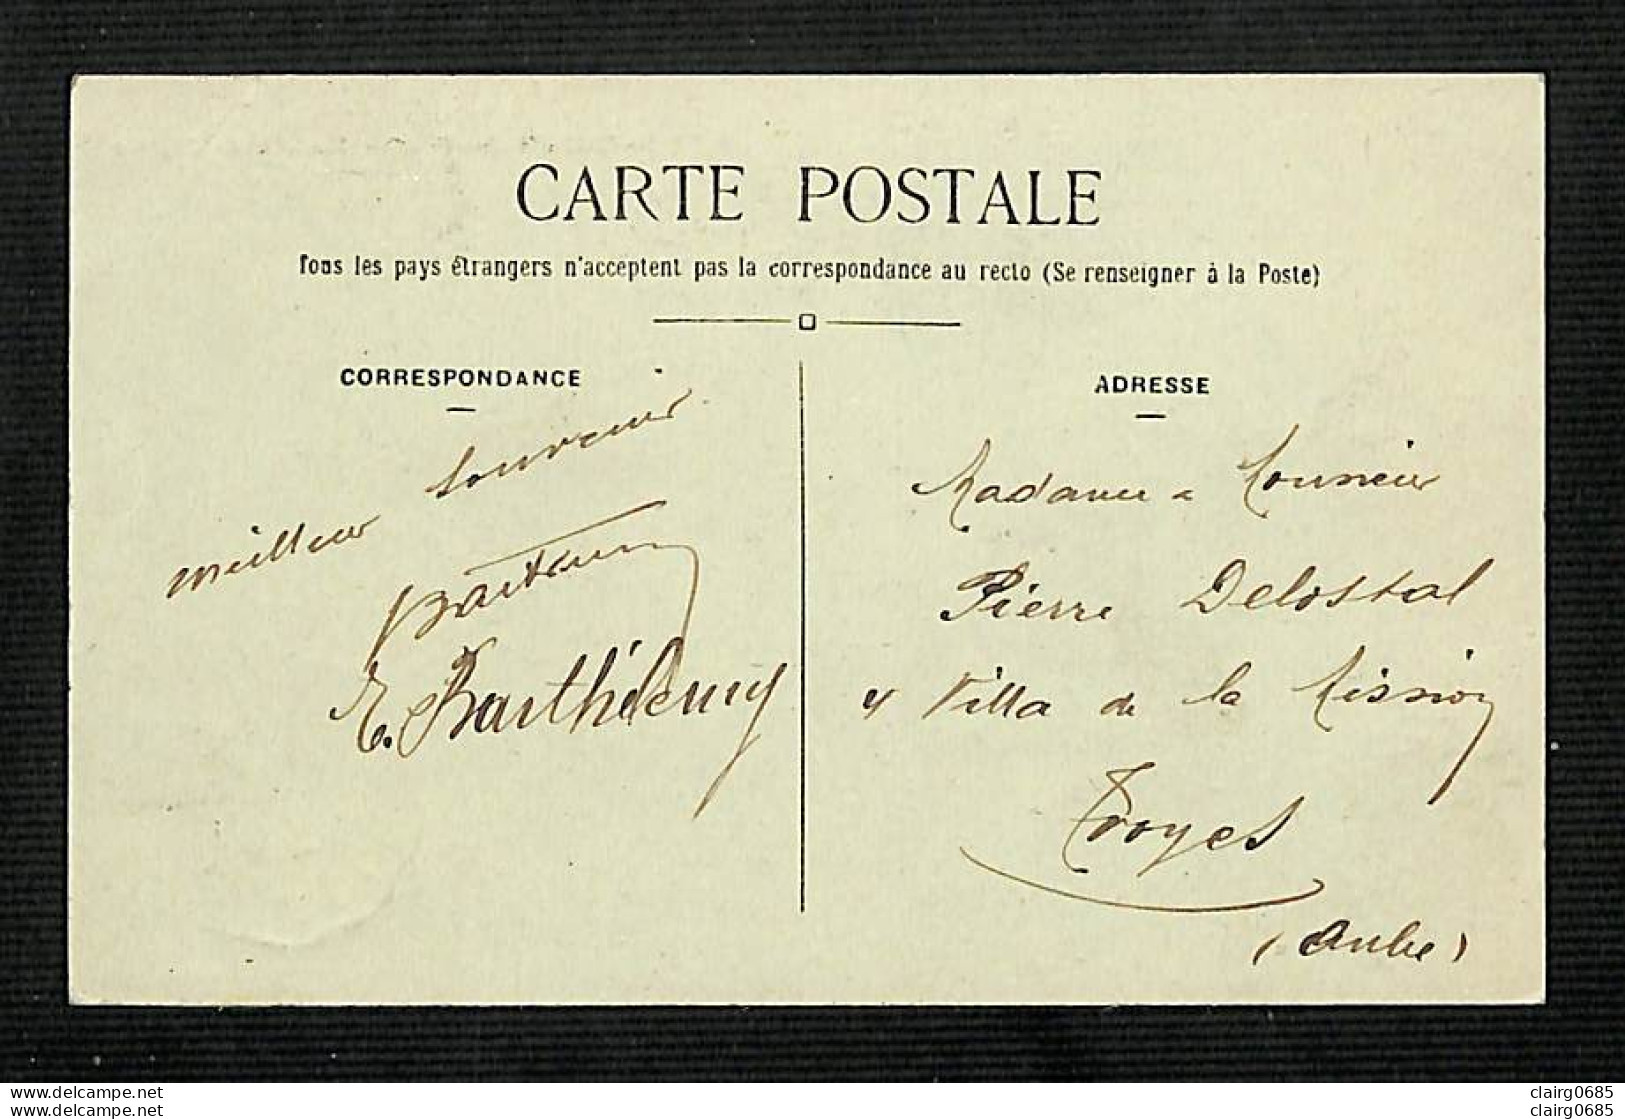 CARTE POSTALE
Tous les pays étrangers n'acceptent pas la correspondance au recto (Se renseigner à la Poste)
CORRESPONDANCE
meilleur souvenir
E. Barthélemy
ADRESSE
Madame & Monsieur
Pierre Delostal
4 Villa de la Mission
Troyes
(Aube)
www.delcampe.net
www.delcampe.net
clairg0685
clairg0685